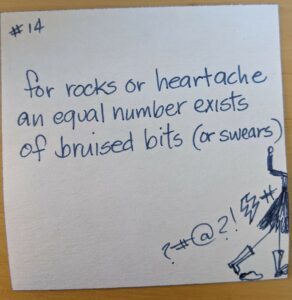 #14
for rocks or heartache
an equal number exists
of bruised bits (or swears)
?#@?!